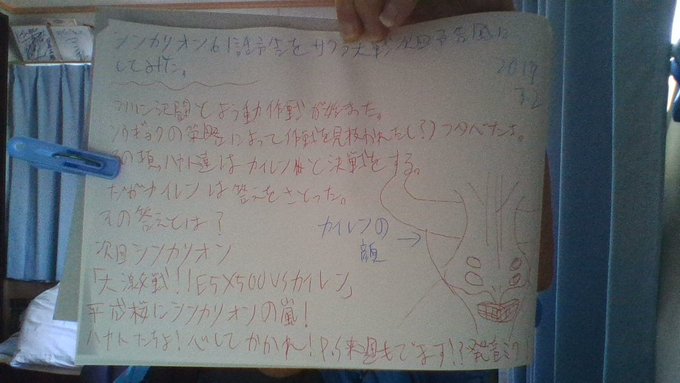 シンカリオン61話予告をサクラ大戦次回予告風に
してみた。
2019
ついに決闘とよう動作戦が始まった。
ソウギョクの策略によって作戦を見抜かれたし?)フタバたち。
その頃ハヤト達はカイレンと決戦をする。
だがカイレンは答えをさとった。
その答えとは?
次回シンカリオン
「大激戦!!E5×500VSカイレン」
平成桜にシンカリオンの嵐!
ハヤトたちよ!心してかかれ!P.S来週もでます!?発音ミク!
カイレンの
顔